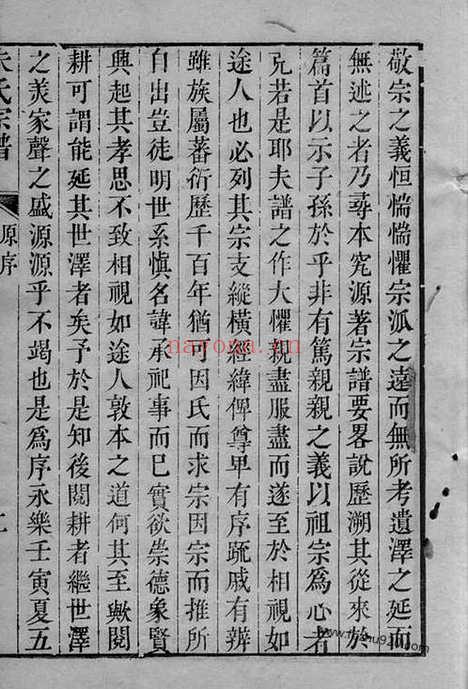 敬宗之義恒惴惴懼宗派之遠而無所考遺澤之延而
無述之者乃尋本究源著宗譜要畧說歷溯其從來於
篇首以示子孫於乎非有篤親親之義以祖宗爲心者
克若是耶夫譜之作大懼親盡服盡而遂至於相視如
途人也必列其宗支縱橫經緯俾尊卑有序疏戚有辨
雖族屬蕃衍歷千百年猶可因氏而求宗因宗而推所
自出豈徒明世系愼名諱承祀事而已實欲崇德象賢
興起其孝思不致相視如途人敦本之道何其至歟閱
耕可謂能延其世澤者矣予於是知後閱耕者繼世澤
之美家聲之盛源源乎不竭也是爲序永樂壬寅夏五
氏宗譜
原序
nayona.cn